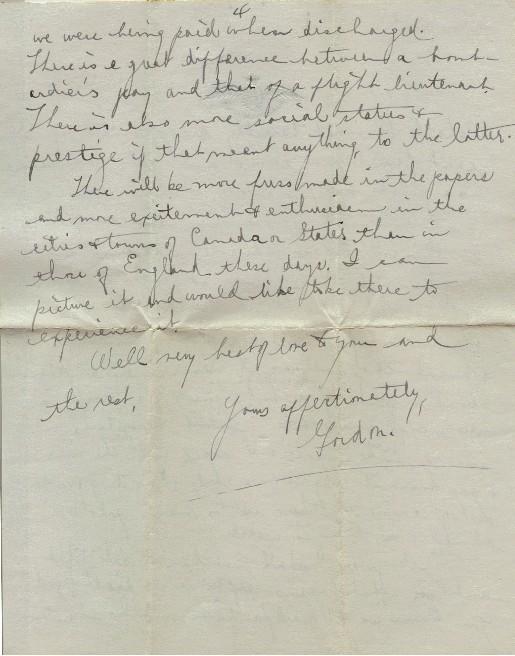 4
we were being paid when discharged.
There is a great difference between a bomb-
ardier's pay and that of a flight lieutenant.
There is also more social status &
prestige if that meant anything, to the latter.
There will be more fuss made in the papers
and more excitement & enthusiasm in the
cities & towns of Canada or States than in
those of England these days. I can
picture it and would like to be there to
experience it.
Well very best of love to you and
the rest,
Yours affectionately,
Gordon.